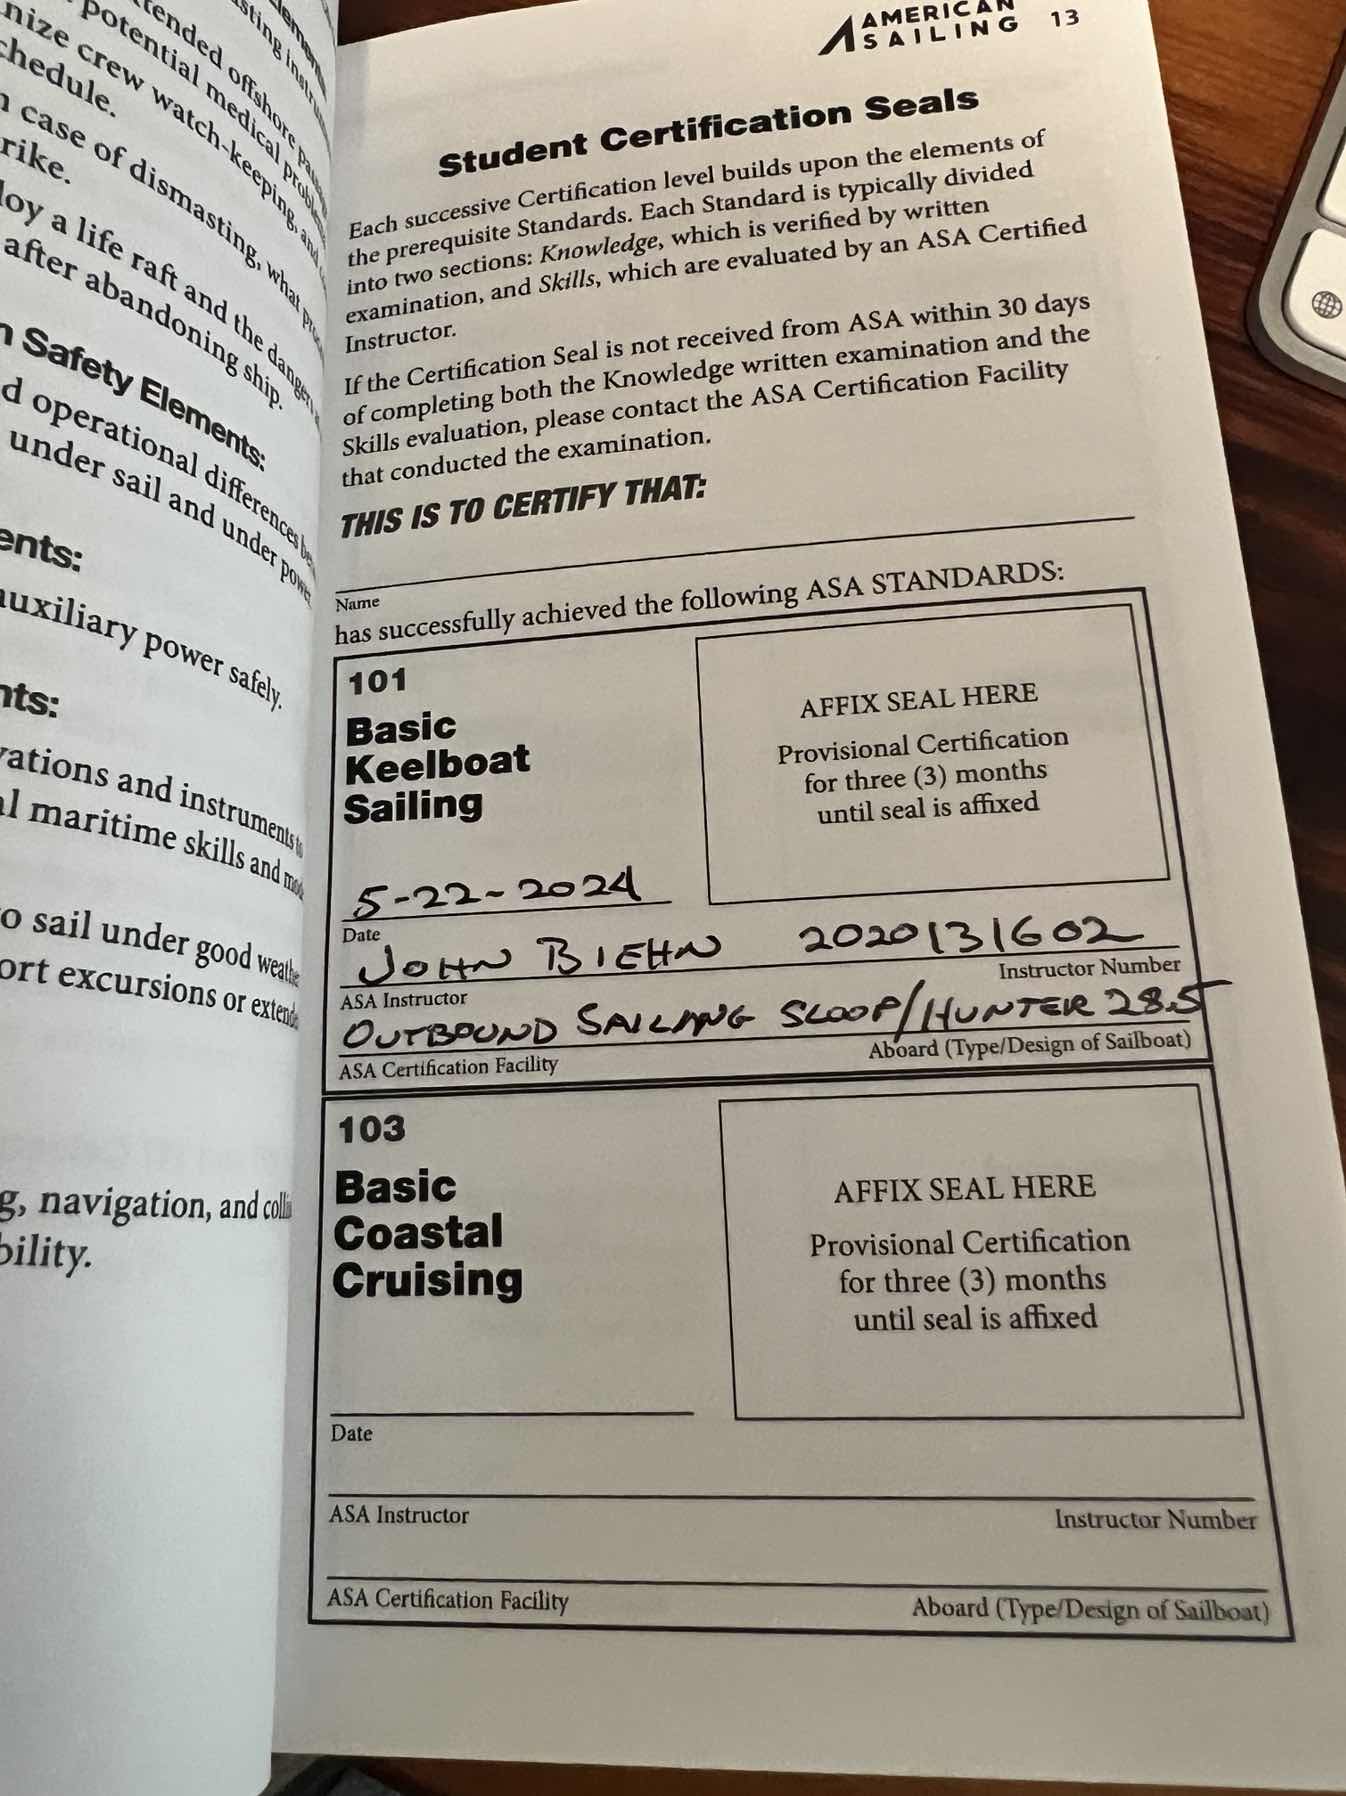 tended offshore
potential medical
nize crew watch-keeping, and
chedule.
case of dismasting, what
rike.
loy a life raft and the dangers
after abandoning ship.
Safety Elements:
d operational differences
under sail and under power.
ents:
auxiliary power safely.
nts:
vations and instruments
al maritime skills and
o sail under good
ort excursions or
g, navigation, and
bility.
AMERICAN
SAILING 13
Student Certification Seals
Each successive Certification level builds upon the elements of
the prerequisite Standards. Each Standard is typically divided
into two sections: Knowledge, which is verified by written
examination, and Skills, which are evaluated by an ASA Certified
Instructor.
If the Certification Seal is not received from ASA within 30 days
of completing both the Knowledge written examination and the
Skills evaluation, please contact the ASA Certification Facility
that conducted the examination.
THIS IS TO CERTIFY THAT:
Name
has successfully achieved the following ASA STANDARDS:
101
Basic
Keelboat
Sailing
AFFIX SEAL HERE
Provisional Certification
for three (3) months
until seal is affixed
5-22-2024
Date
JOHN BIEHN 2020131602
ASA Instructor Instructor Number
OUTBOUND SAILING SLOOP/HUNTER 28.5
ASA Certification Facility Aboard (Type/Design of Sailboat)
103
Basic
Coastal
Cruising
AFFIX SEAL HERE
Provisional Certification
for three (3) months
until seal is affixed
Date
ASA Instructor Instructor Number
ASA Certification Facility Aboard (Type/Design of Sailboat)